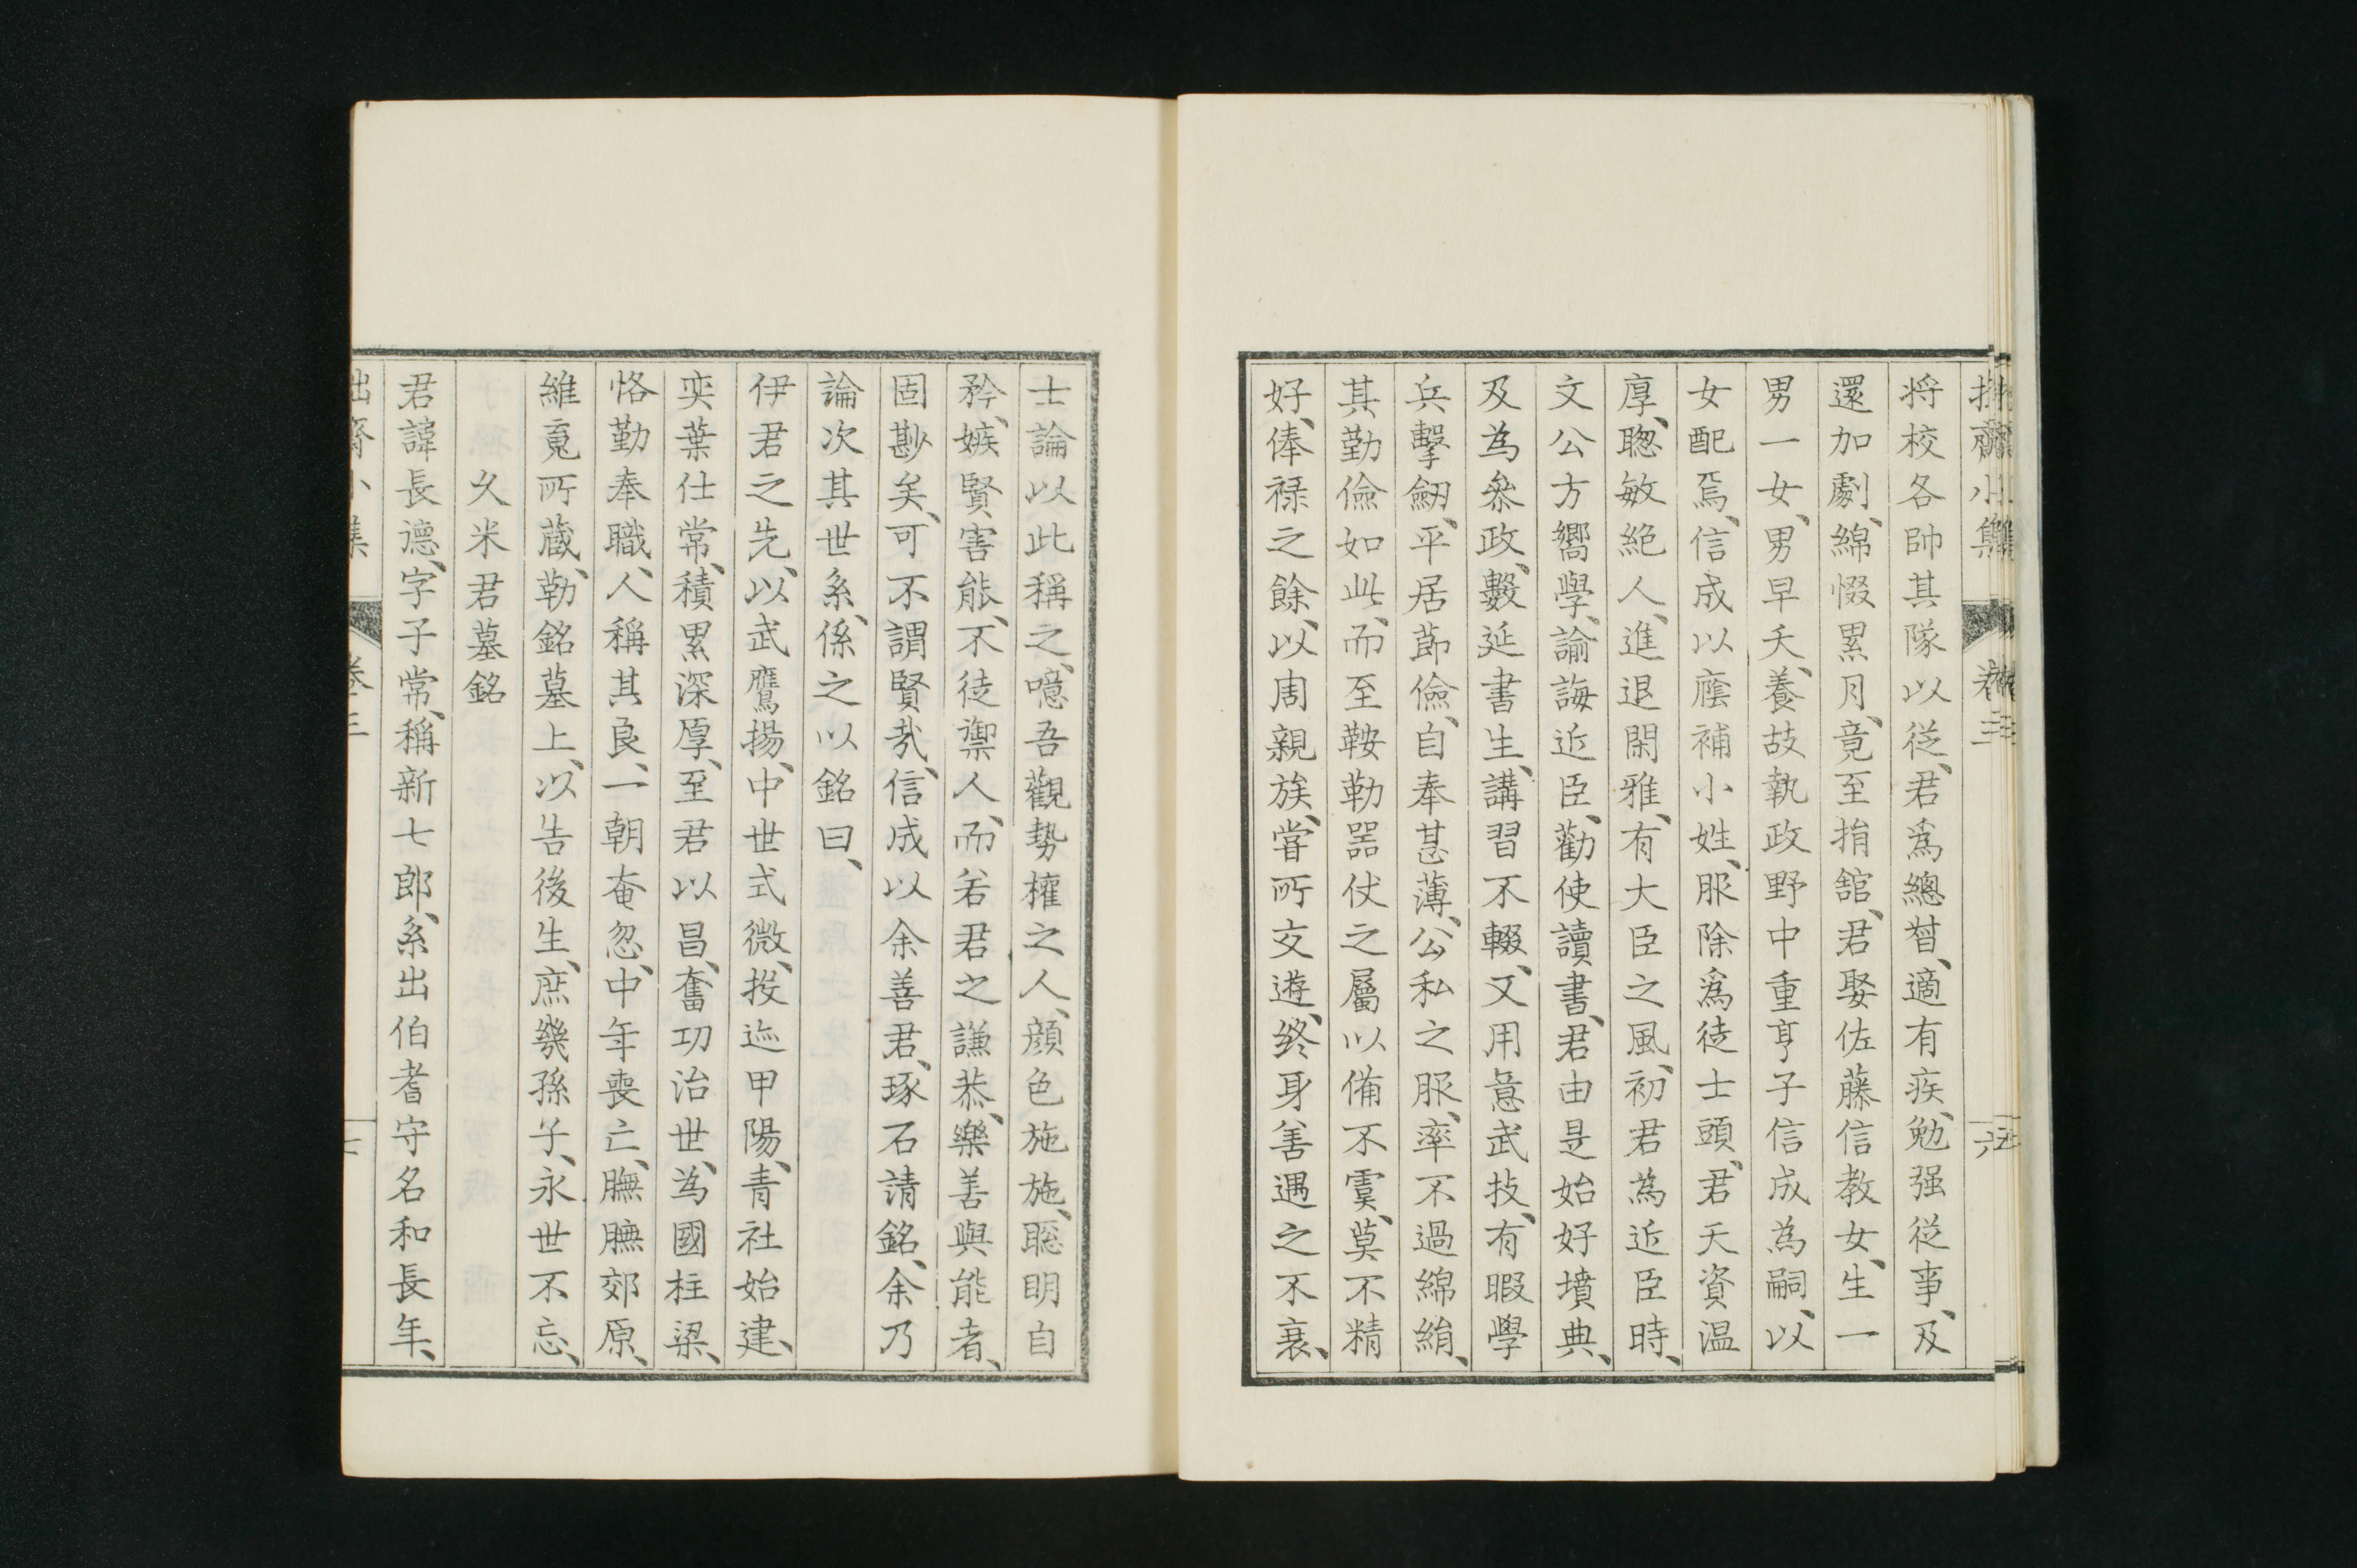 拙齋小集 卷三 六
将校各帥其隊以従、君爲總督、適有疾、勉强従事、及
還加劇、綿惙累月、竟至捐舘、君娶佐藤信教女、生一
男一女、男早夭、養故執政野中重亨子信成為嗣、以
女配焉、信成以廕補小姓、服除爲徒士頭、君天資温
厚、聡敏絶人、進退閑雅、有大臣之風、初君為近臣時、
文公方嚮學、諭誨近臣、勸使讀書、君由是始好墳典、
及為叅政、數延書生、講習不輟、又用意武技、有暇學
兵擊劒、平居節儉、自奉甚薄、公私之服、率不過綿絹、
其勤儉如此、而至鞍勒器仗之屬以備不虞、莫不精
好、俸禄之餘、以周親族、甞所交遊、終身善遇之不衰、
士論以此稱之、噫吾觀勢權之人、顔色施施、聡明自
矜、嫉賢害能、不徒禦人、而若君之謙恭、樂善與能者、
固尠矣、可不謂賢哉、信成以余善君、琢石請銘、余乃
論次其世系、係之以銘曰、
伊君之先、以武鷹揚、中世式微、投迹甲陽、青社始建、
奕葉仕常、積累深厚、至君以昌、奮功治世、為國柱梁、
恪勤奉職、人稱其良、一朝奄忽、中年喪亡、膴膴郊原、
維䰟所蔵、勒銘墓上、以告後生、庶幾孫子、永世不忘、
久米君墓銘
君諱長德、字子常、稱新七郎、系出伯耆守名和長年、
拙齋小集 卷三 七